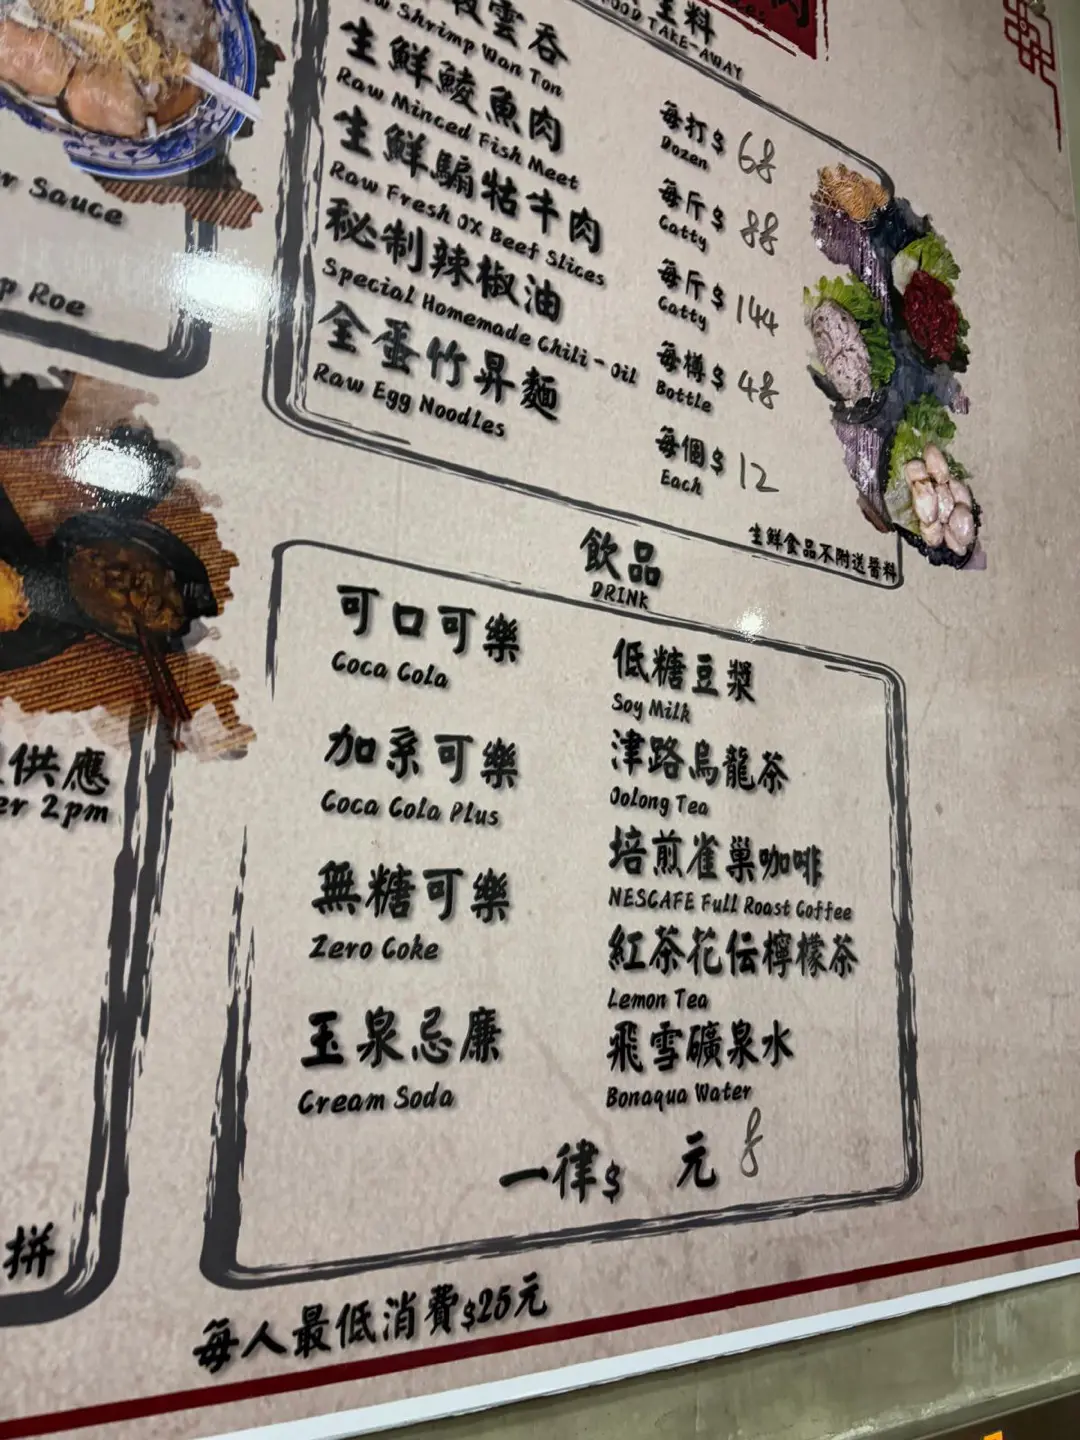 生料
FOOD TAKE-AWAY
雲吞
Raw Shrimp Wan Ton
每打$ 68
Dozen
生鮮鯪魚肉
Raw Minced Fish Meet
每斤$ 88
Catty
生鮮騸牯牛肉
Raw Fresh OX Beef Slices
每斤$ 144
Catty
秘制辣椒油
Special Homemade Chili-Oil
每樽$ 48
Bottle
全蛋竹昇麵
Raw Egg Noodles
每個$ 12
Each
生鮮食品不附送醬料
Sauce
Roe
供應
2pm
拼
飲品
DRINK
可口可樂
Coca Cola
加系可樂
Coca Cola Plus
無糖可樂
Zero Coke
玉泉忌廉
Cream Soda
低糖豆漿
Soy Milk
津路烏龍茶
Oolong Tea
培煎雀巢咖啡
NESCAFE Full Roast Coffee
紅茶花伝檸檬茶
Lemon Tea
飛雪礦泉水
Bonaqua Water
一律$ 元 8
每人最低消費$25元